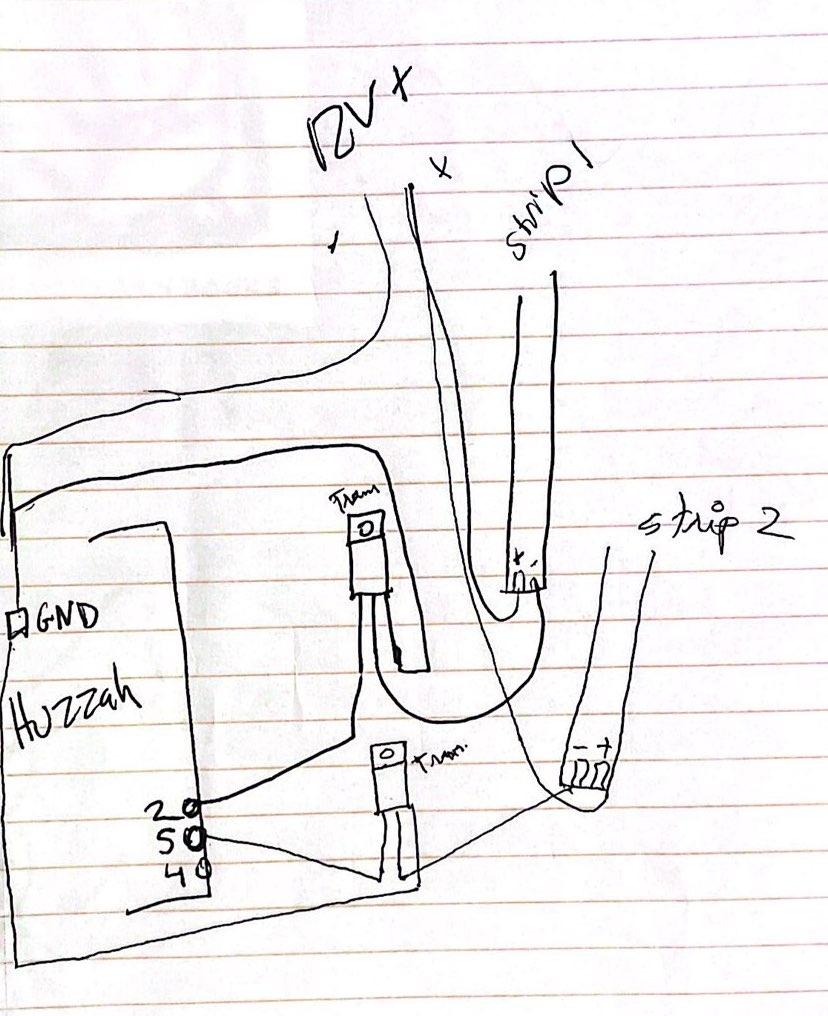 12V +
+
-
strip 1
Tran.
+ -
strip 2
GND
Huzzah
- +
Tran.
2
5
4